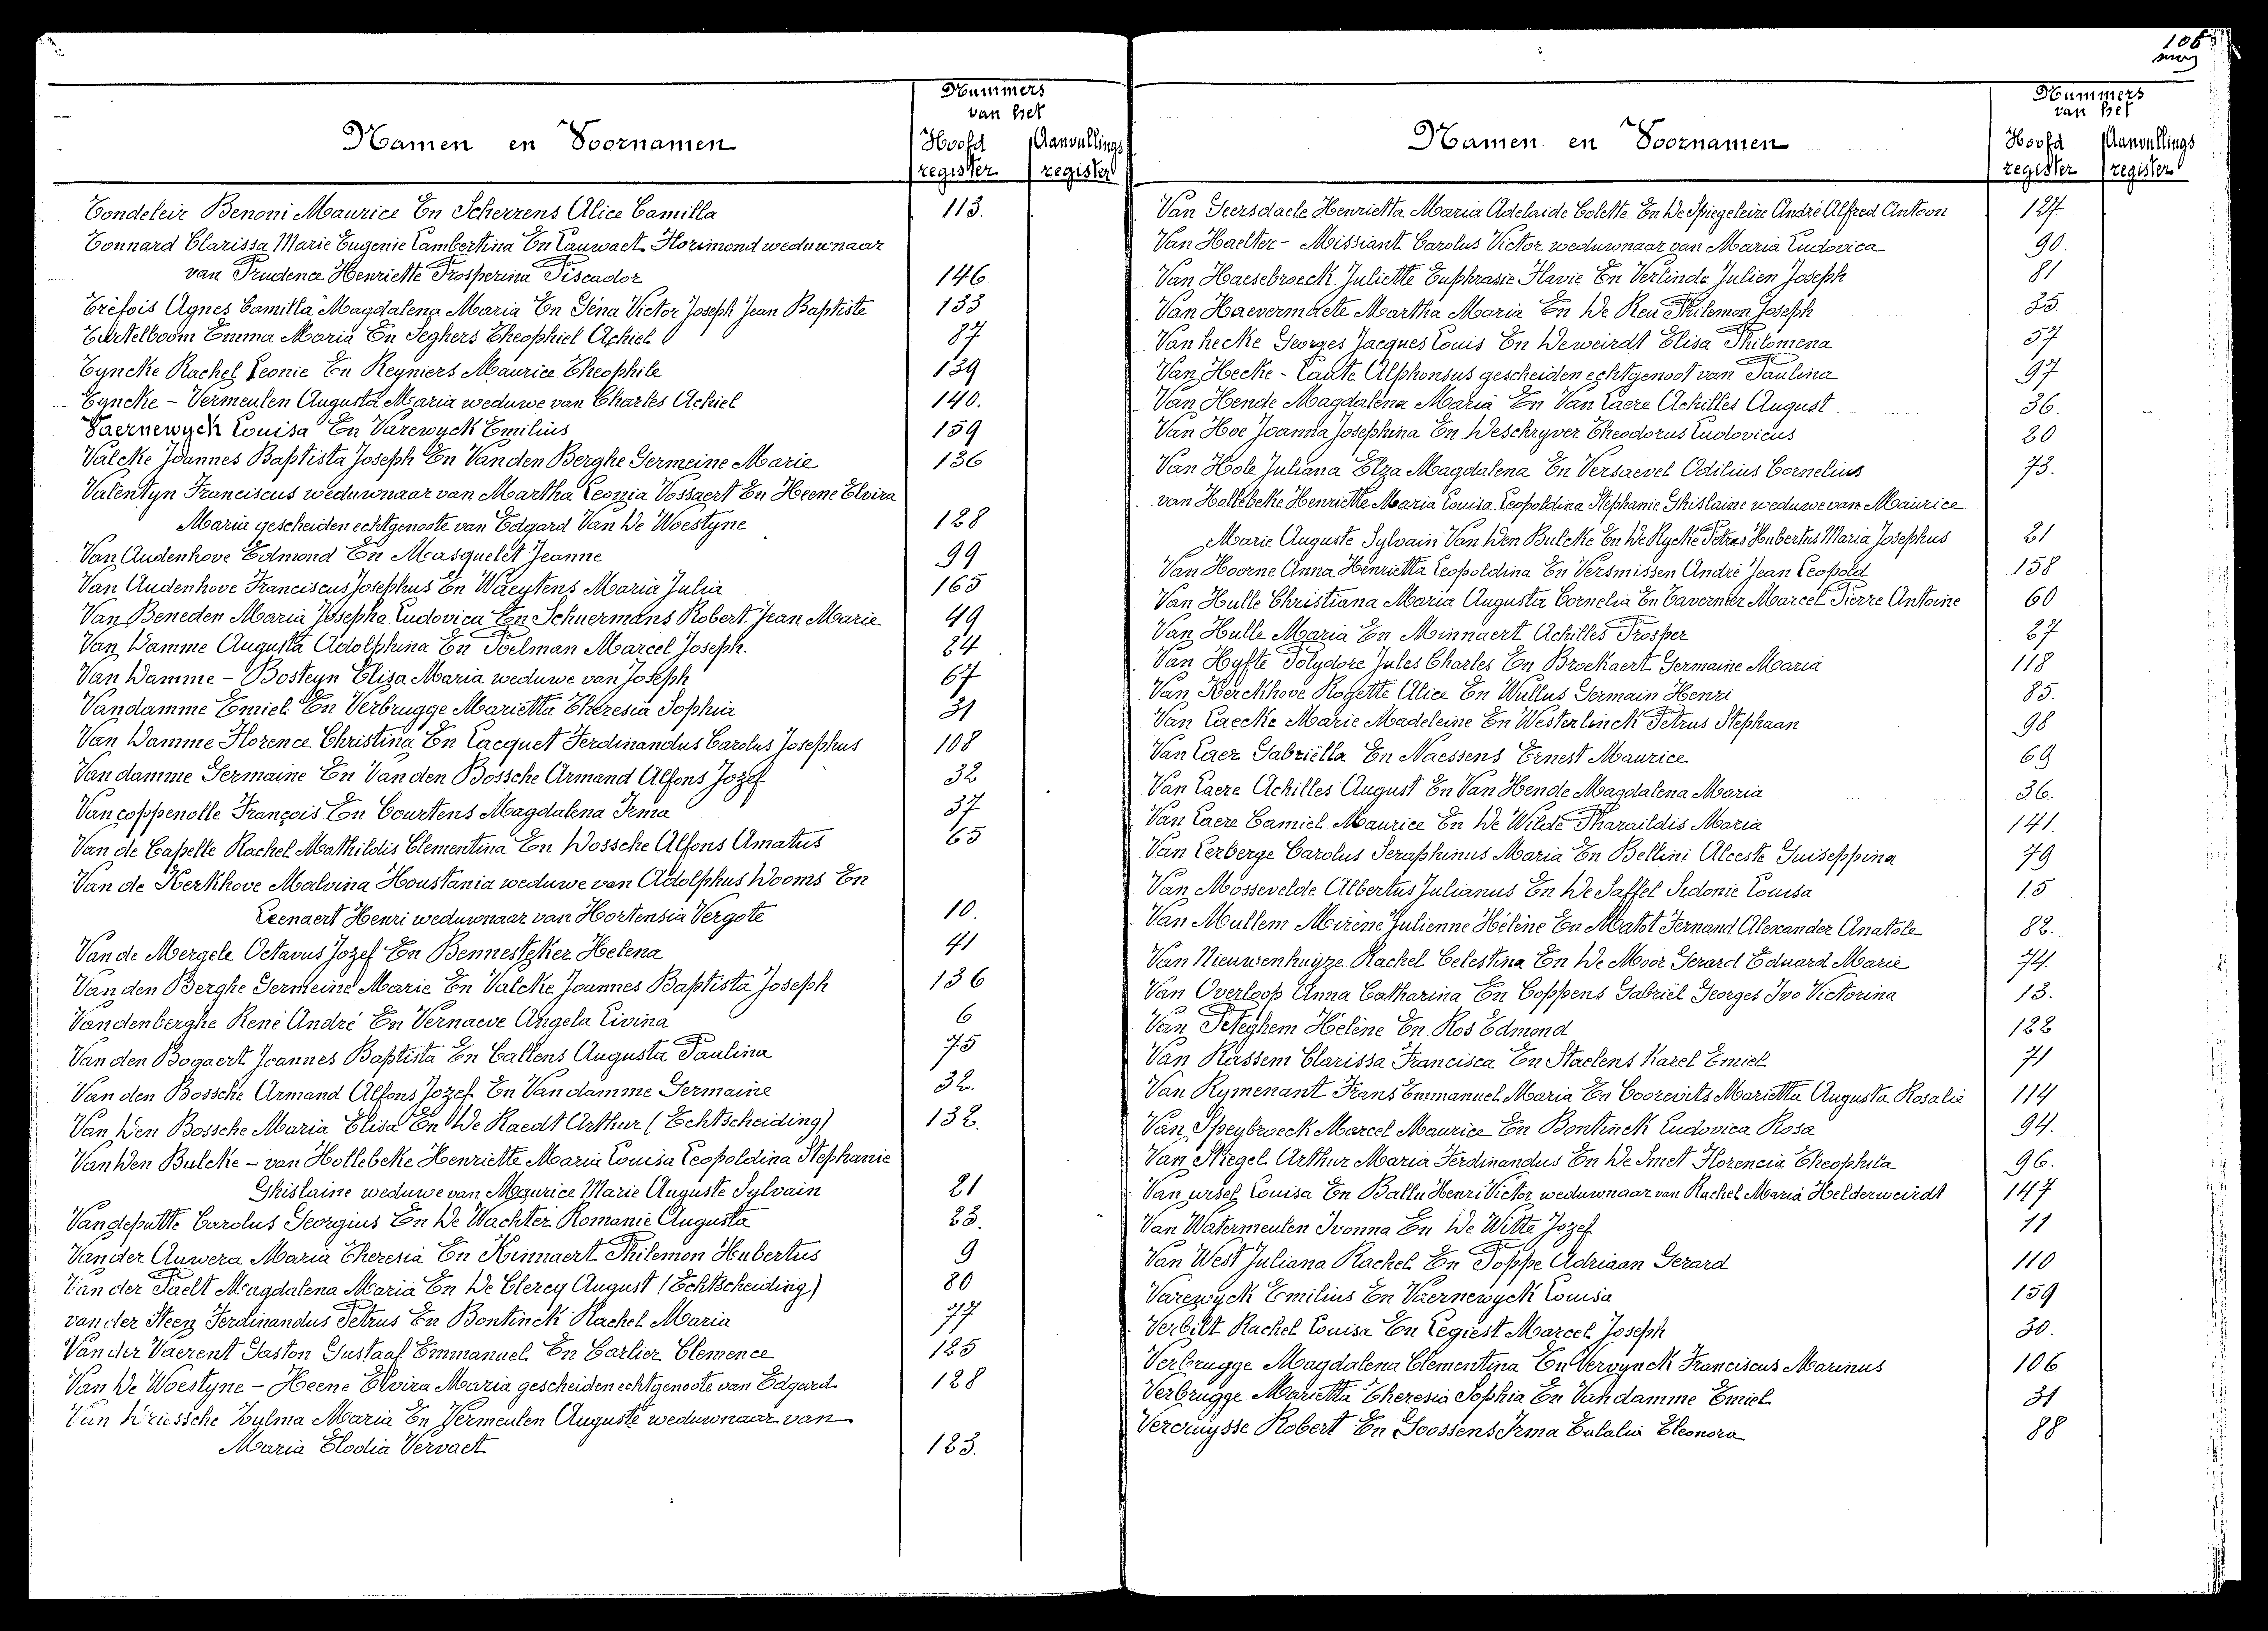 106
Nummers
van het
Namen en Voornamen
Hoofd Aanvullings
register register
Tondeleir Benoni Maurice En Scherrens Alice Camilla 113.
Tonnard Clarissa Marie Eugenie Lambertina En Lauwaet Florimond weduwnaar
van Prudence Henriette Prosperina Piscador 146
Tréfois Agnes Camilla Magdalena Maria En Géna Victor Joseph Jean Baptiste 133
Turtelboom Emma Maria En Seghers Theophiel Achiel 87
Tyncke Rachel Leonie En Reyniers Maurice Theophile 139
Tyncke - Vermeulen Augusta Maria weduwe van Charles Achiel 140.
Vaernewyck Louisa En Varewyck Emilius 159
Valcke Joannes Baptista Joseph En Van den Berghe Germeine Marie 136
Valentyn Franciscus weduwnaar van Martha Leonia Vossaert En Heene Elvira
Maria gescheiden echtgenoote van Edgard Van De Woestyne 128
Van Audenhove Edmond En Masquelet Jeanne 99
Van Audenhove Franciscus Josephus En Waeytens Maria Julia 165
Van Beneden Maria Josepha Ludovica En Schuermans Robert Jean Marie 49
Van Damme Augusta Adolphina En Poelman Marcel Joseph. 24
Van Damme - Bosteyn Elisa Maria weduwe van Joseph 67
Vandamme Emiel En Verbrugge Marietta Theresia Sophia 31
Van Damme Florence Christina En Lacquet Ferdinandus Carolus Josephus 108
Van damme Germaine En Van den Bossche Armand Alfons Jozef 32
Van coppenolle François En Courtens Magdalena Irma 37
Van de Capelle Rachel Mathildis Clementina En Dossche Alfons Amatus 65
Van de Kerkhove Malvina Houstania weduwe van Adolphus Dooms En
Leenaert Henri weduwnaar van Hortensia Vergote 10.
Van de Mergele Octavus Jozef En Bennesteker Helena 41
Van den Berghe Germeine Marie En Valcke Joannes Baptista Joseph 136
Vandenberghe René André En Vernaeve Angela Livina 6
Van den Bogaert Joannes Baptista En Callens Augusta Paulina 75
Van den Bossche Armand Alfons Jozef En Van damme Germaine 32.
Van Den Bossche Maria Elisa En De Raedt Arthur (Echtscheiding) 132.
Van Den Bulcke - van Hollebeke Henriette Maria Louisa Leopoldina Stephanie
Ghislaine weduwe van Maurice Marie Auguste Sylvain 21
Vandeputte Carolus Georgius En De Wachter Romanie Augusta 23.
Van der Auwera Maria Theresia En Kinnaert Philemon Hubertus 9
Van der Paelt Magdalena Maria En De Clercq August (Echtscheiding) 80
van der Steen Ferdinandus Petrus En Bontinck Rachel Maria 77
Van der Vaerent Gaston Gustaaf Emmanuel En Carlier Clemence 125
Van De Woestyne - Heene Elvira Maria gescheiden echtgenoote van Edgard 128
Van Driessche Zulma Maria En Vermeulen Auguste weduwnaar van
Maria Elodia Vervaet 123.
Nummers
van het
Namen en Voornamen
Hoofd Aanvullings
register register
Van Geersdaele Henrietta Maria Adelaide Colette En De Spiegeleire André Alfred Antoon 127
Van Haelter - Missiant Carolus Victor weduwnaar van Maria Ludovica 90.
Van Haesebroeck Juliette Euphrasie Flavie En Verlinde Julien Joseph 81
Van Haevermaete Martha Maria En De Reu Philemon Joseph 25.
Van hecke Georges Jacques Louis En Deweirdt Elisa Philomena 57
Van Hecke - Laute Alphonsus gescheiden echtgenoot van Paulina 97
Van Hende Magdalena Maria En Van Laere Achilles August 36.
Van Hoe Joanna Josephina En Deschryver Theodorus Ludovicus 20
Van Hole Juliana Elza Magdalena En Versaevel Odilius Cornelius 73.
van Hollebeke Henriette Maria Louisa Leopoldina Stephanie Ghislaine weduwe van Maurice
Marie Auguste Sylvain Van Den Bulcke En De Rycke Petrus Hubertus Maria Josephus 21
Van Hoorne Anna Henrietta Leopoldina En Versmissen André Jean Leopold 158
Van Hulle Christiana Maria Augusta Cornelia En Tavernier Marcel Pierre Antoine 60
Van Hulle Maria En Minnaert Achilles Prosper 27
Van Hyfte Polydore Jules Charles En Brockaert Germaine Maria 118
Van Kerckhove Rogette Alice En Wullus Germain Henri 85.
Van Laecke Marie Madeleine En Westerlinck Petrus Stephaan 98
Van Laer Gabriëlla En Naessens Ernest Maurice 69
Van Laere Achilles August En Van Hende Magdalena Maria 36.
Van Laere Camiel Maurice En De Wilde Pharaildis Maria 141.
Van Lerberge Carolus Seraphinus Maria En Bellini Alceste Guiseppina 79
Van Mossevelde Albertus Julianus En De Saffel Sidonie Louisa 15
Van Mullem Mirène Julienne Hélène En Matot Fernand Alexander Anatole 82.
Van Nieuwenhuyze Rachel Celestina En De Moor Gerard Eduard Marie 74.
Van Overloop Anna Catharina En Coppens Gabriël Georges Ivo Victorina 13.
Van Peteghem Hélène En Ros Edmond 122
Van Rassem Clarissa Francisca En Staelens Karel Emiel 71
Van Rymenant Frans Emmanuel Maria En Coorevits Marietta Augusta Rosalie 114
Van Speybroeck Marcel Maurice En Bontinck Ludovica Rosa 94.
Van Stiegel Arthur Maria Ferdinandus En De Smet Florencia Theophila 96.
Van ursel Louisa En Ballu Henri Victor weduwnaar van Rachel Maria Helderweirdt 147
Van Watermeulen Ivonna En De Witte Jozef 11
Van West Juliana Rachel En Poppe Adriaan Gerard 110
Varewyck Emilius En Vaernewyck Louisa 159
Verbilt Rachel Louisa En Legiest Marcel Joseph 30.
Verbrugge Magdalena Clementina En Vervynck Franciscus Marinus 106
Verbrugge Marietta Theresia Sophia En Van damme Emiel 31
Vercruysse Robert En Goossens Irma Eulalia Eleonora 88